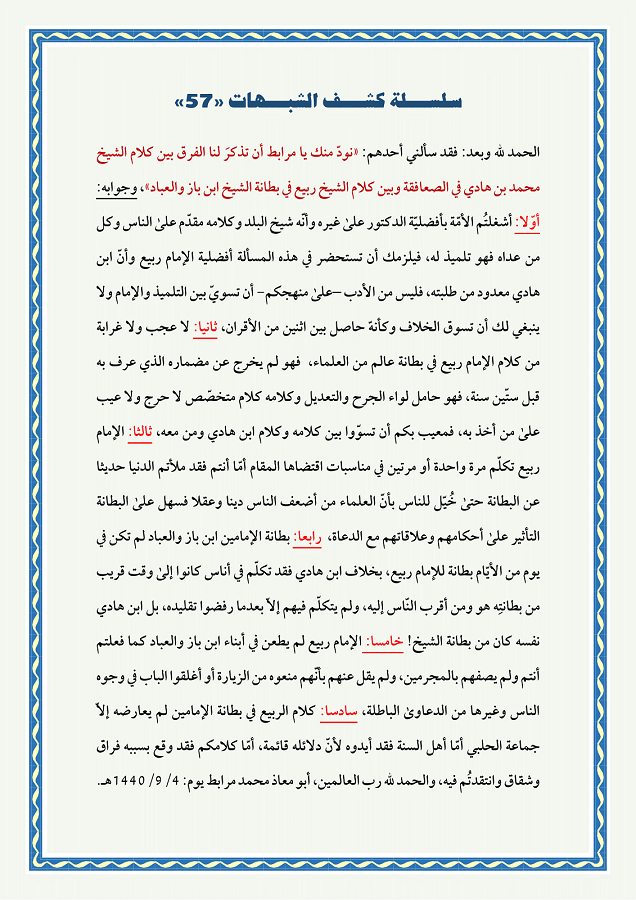 سلسلة كشف الشبهات «57»
الحمد لله وبعد: فقد سألني أحدهم: «نودّ منك يا مرابط أن تذكرَ لنا الفرق بين كلام الشيخ
محمد بن هادي في الصعافقة وبين كلام الشيخ ربيع في بطانة الشيخ ابن باز والعباد»، وجوابه:
أوّلا: أشغلتُم الأمّة بأفضليّة الدكتور علىٰ غيره وأنّه شيخ البلد وكلامه مقدّم علىٰ الناس وكل
من عداه فهو تلميذ له، فيلزمك أن تستحضر في هذه المسألة أفضلية الإمام ربيع وأنّ ابن
هادي معدود من طلبته، فليس من الأدب –علىٰ منهجكم- أن تسويّ بين التلميذ والإمام ولا
ينبغي لك أن تسوق الخلاف وكأنهّ حاصل بين اثنين من الأقران، ثانيا: لا عجب ولا غرابة
من كلام الإمام ربيع في بطانة عالم من العلماء، فهو لم يخرج عن مضماره الذي عرف به
قبل ستّين سنة، فهو حامل لواء الجرح والتعديل وكلامه كلام متخصّص لا حرج ولا عيب
علىٰ من أخذ به، فمعيب بكم أن تسوّوا بين كلامه وكلام ابن هادي ومن معه، ثالثا: الإمام
ربيع تكلّم مرة واحدة أو مرتين في مناسبات اقتضاها المقام أمّا أنتم فقد ملأتم الدنيا حديثا
عن البطانة حتىٰ خُيّل للناس بأنّ العلماء من أضعف الناس دينا وعقلا فسهل علىٰ البطانة
التأثير علىٰ أحكامهم وعلاقاتهم مع الدعاة، رابعا: بطانة الإمامين ابن باز والعباد لم تكن في
يوم من الأيّام بطانة للإمام ربيع، بخلاف ابن هادي فقد تكلّم في أناس كانوا إلىٰ وقت قريب
من بطانتِه هو ومن أقرب النّاس إليه، ولم يتكلّم فيهم إلاّ بعدما رفضوا تقليده، بل ابن هادي
نفسه كان من بطانة الشيخ! خامسا: الإمام ربيع لم يطعن في أبناء ابن باز والعباد كما فعلتم
أنتم ولم يصفهم بالمجرمين، ولم يقل عنهم بأنّهم منعوه من الزيارة أو أغلقوا الباب في وجوه
الناس وغيرها من الدعاوىٰ الباطلة، سادسا: كلام الربيع في بطانة الإمامين لم يعارضه إلاّ
جماعة الحلبي أمّا أهل السنة فقد أيدوه لأنّ دلائله قائمة، أمّا كلامكم فقد وقع بسببه فراق
وشقاق وانتقدتُم فيه، والحمد لله رب العالمين، أبو معاذ محمد مرابط يوم: 4/ 9/ 1440هـ.